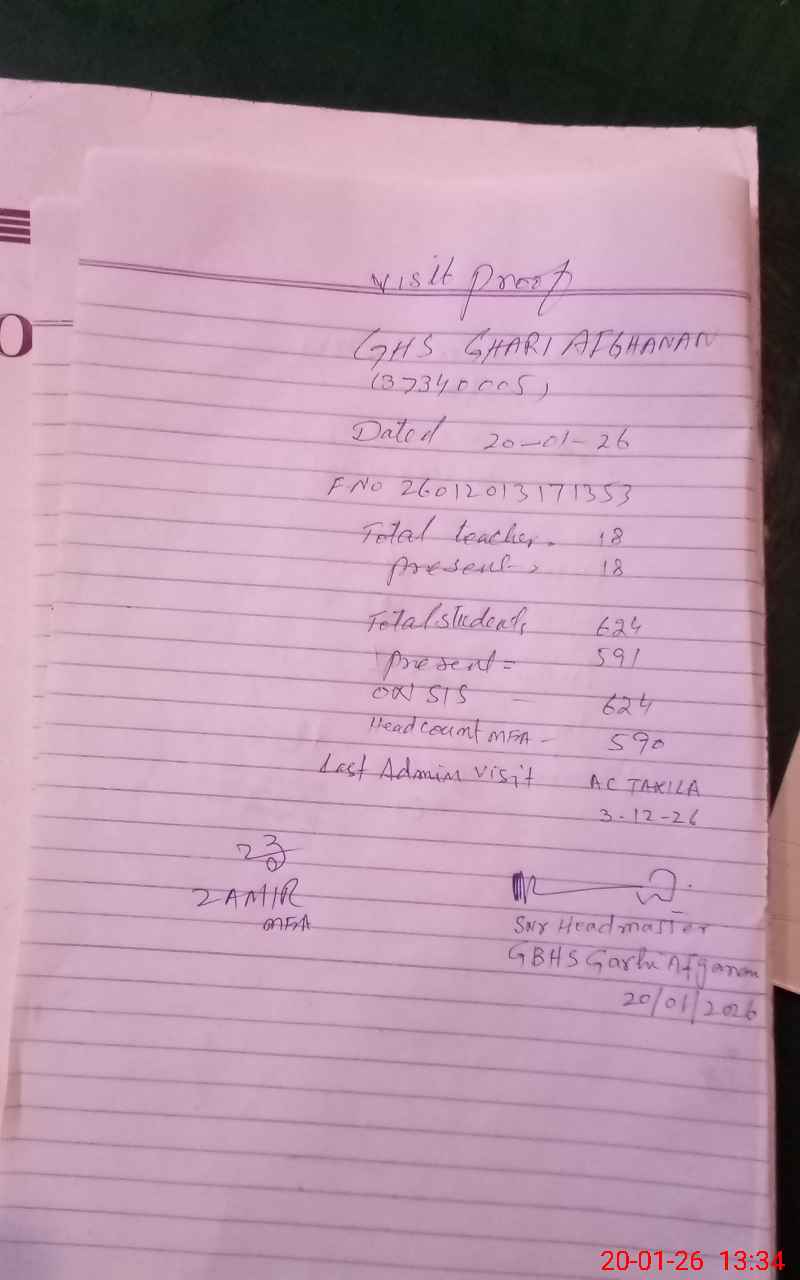 Visit Proof
GHS GHARI AFGHANAN
(37340005)
Dated 20-01-26
F.NO 26012013171353
Total teacher. 18
Present - 18
Total students 624
Present = 591
ON SIS - 624
Headcount MEA - 590
Last Admin Visit AC TAXILA
3-12-26
ZAMIR
MEA
Snr Headmaster
GBHS Garhi Afganan
20/01/2026
O
20-01-26 13:34